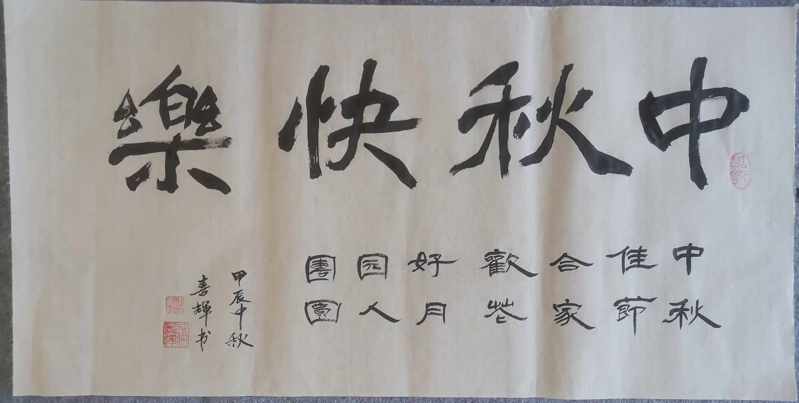 中秋快樂
中秋
佳節
合家
歡花
好月
园人
團圓
甲辰中秋
喜輝书